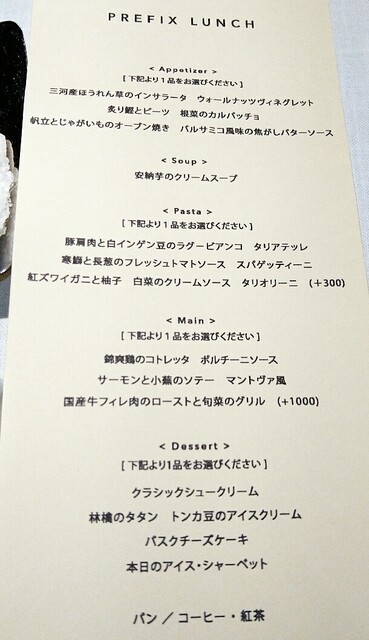 PREFIX LUNCH
< Appetizer >
[ 下記より1品をお選びください ]
三河産ほうれん草のインサラータ　ウォールナッツヴィネグレット
炙り鰹とビーツ　根菜のカルパッチョ
帆立とじゃがいものオーブン焼き　バルサミコ風味の焦がしバターソース
< Soup >
安納芋のクリームスープ
< Pasta >
[ 下記より1品をお選びください ]
豚肩肉と白インゲン豆のラグービアンコ　タリアテッレ
寒鰤と長葱のフレッシュトマトソース　スパゲッティーニ
紅ズワイガニと柚子　白菜のクリームソース　タリオリーニ　(+300)
< Main >
[ 下記より1品をお選びください ]
錦爽鶏のコトレッタ　ポルチーニソース
サーモンと小蕪のソテー　マントヴァ風
国産牛フィレ肉のローストと旬菜のグリル　(+1000)
< Dessert >
[ 下記より1品をお選びください ]
クラシックシュークリーム
林檎のタタン　トンカ豆のアイスクリーム
バスクチーズケーキ
本日のアイス・シャーベット
パン ／ コーヒー・紅茶